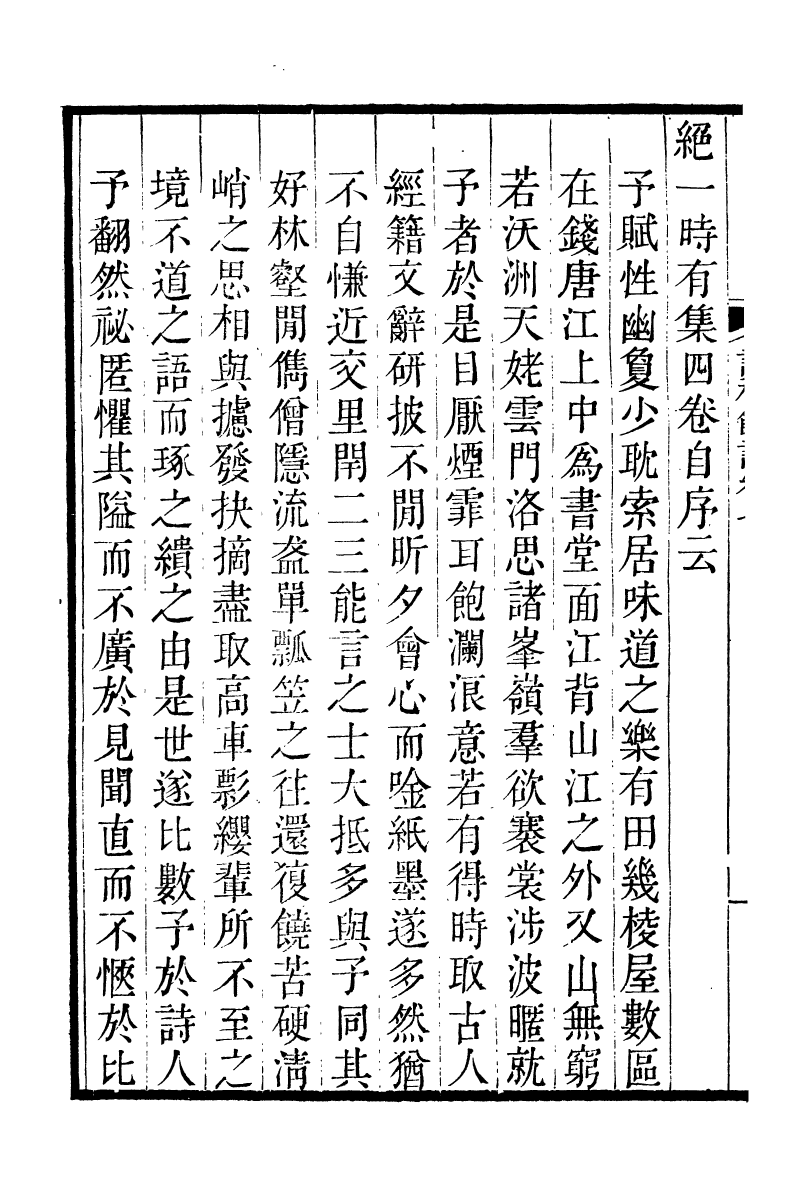 絕一時有集四卷自序云
予賦性幽敻少耽索居味道之樂有田幾棱屋數區
在錢唐江上中爲書堂面江背山江之外又山無窮
若沃洲天姥雲門洛思諸峯嶺羣欲褰裳涉波暱就
予者於是目厭煙霏耳飽瀾浪意若有得時取古人
經籍文辭硏披不閒昕夕會心而唫紙墨遂多然猶
不自慊近交里閈二三能言之士大抵多與予同其
好林壑閒儁僧隱流盋單瓢笠之往還復饒苦硬淸
峭之思相與攄發抉摘盡取高車影纓輩所不至之
境不道之語而琢之繢之由是世遂比數予於詩人
予翻然祕匿懼其隘而不廣於見聞直而不愜於比